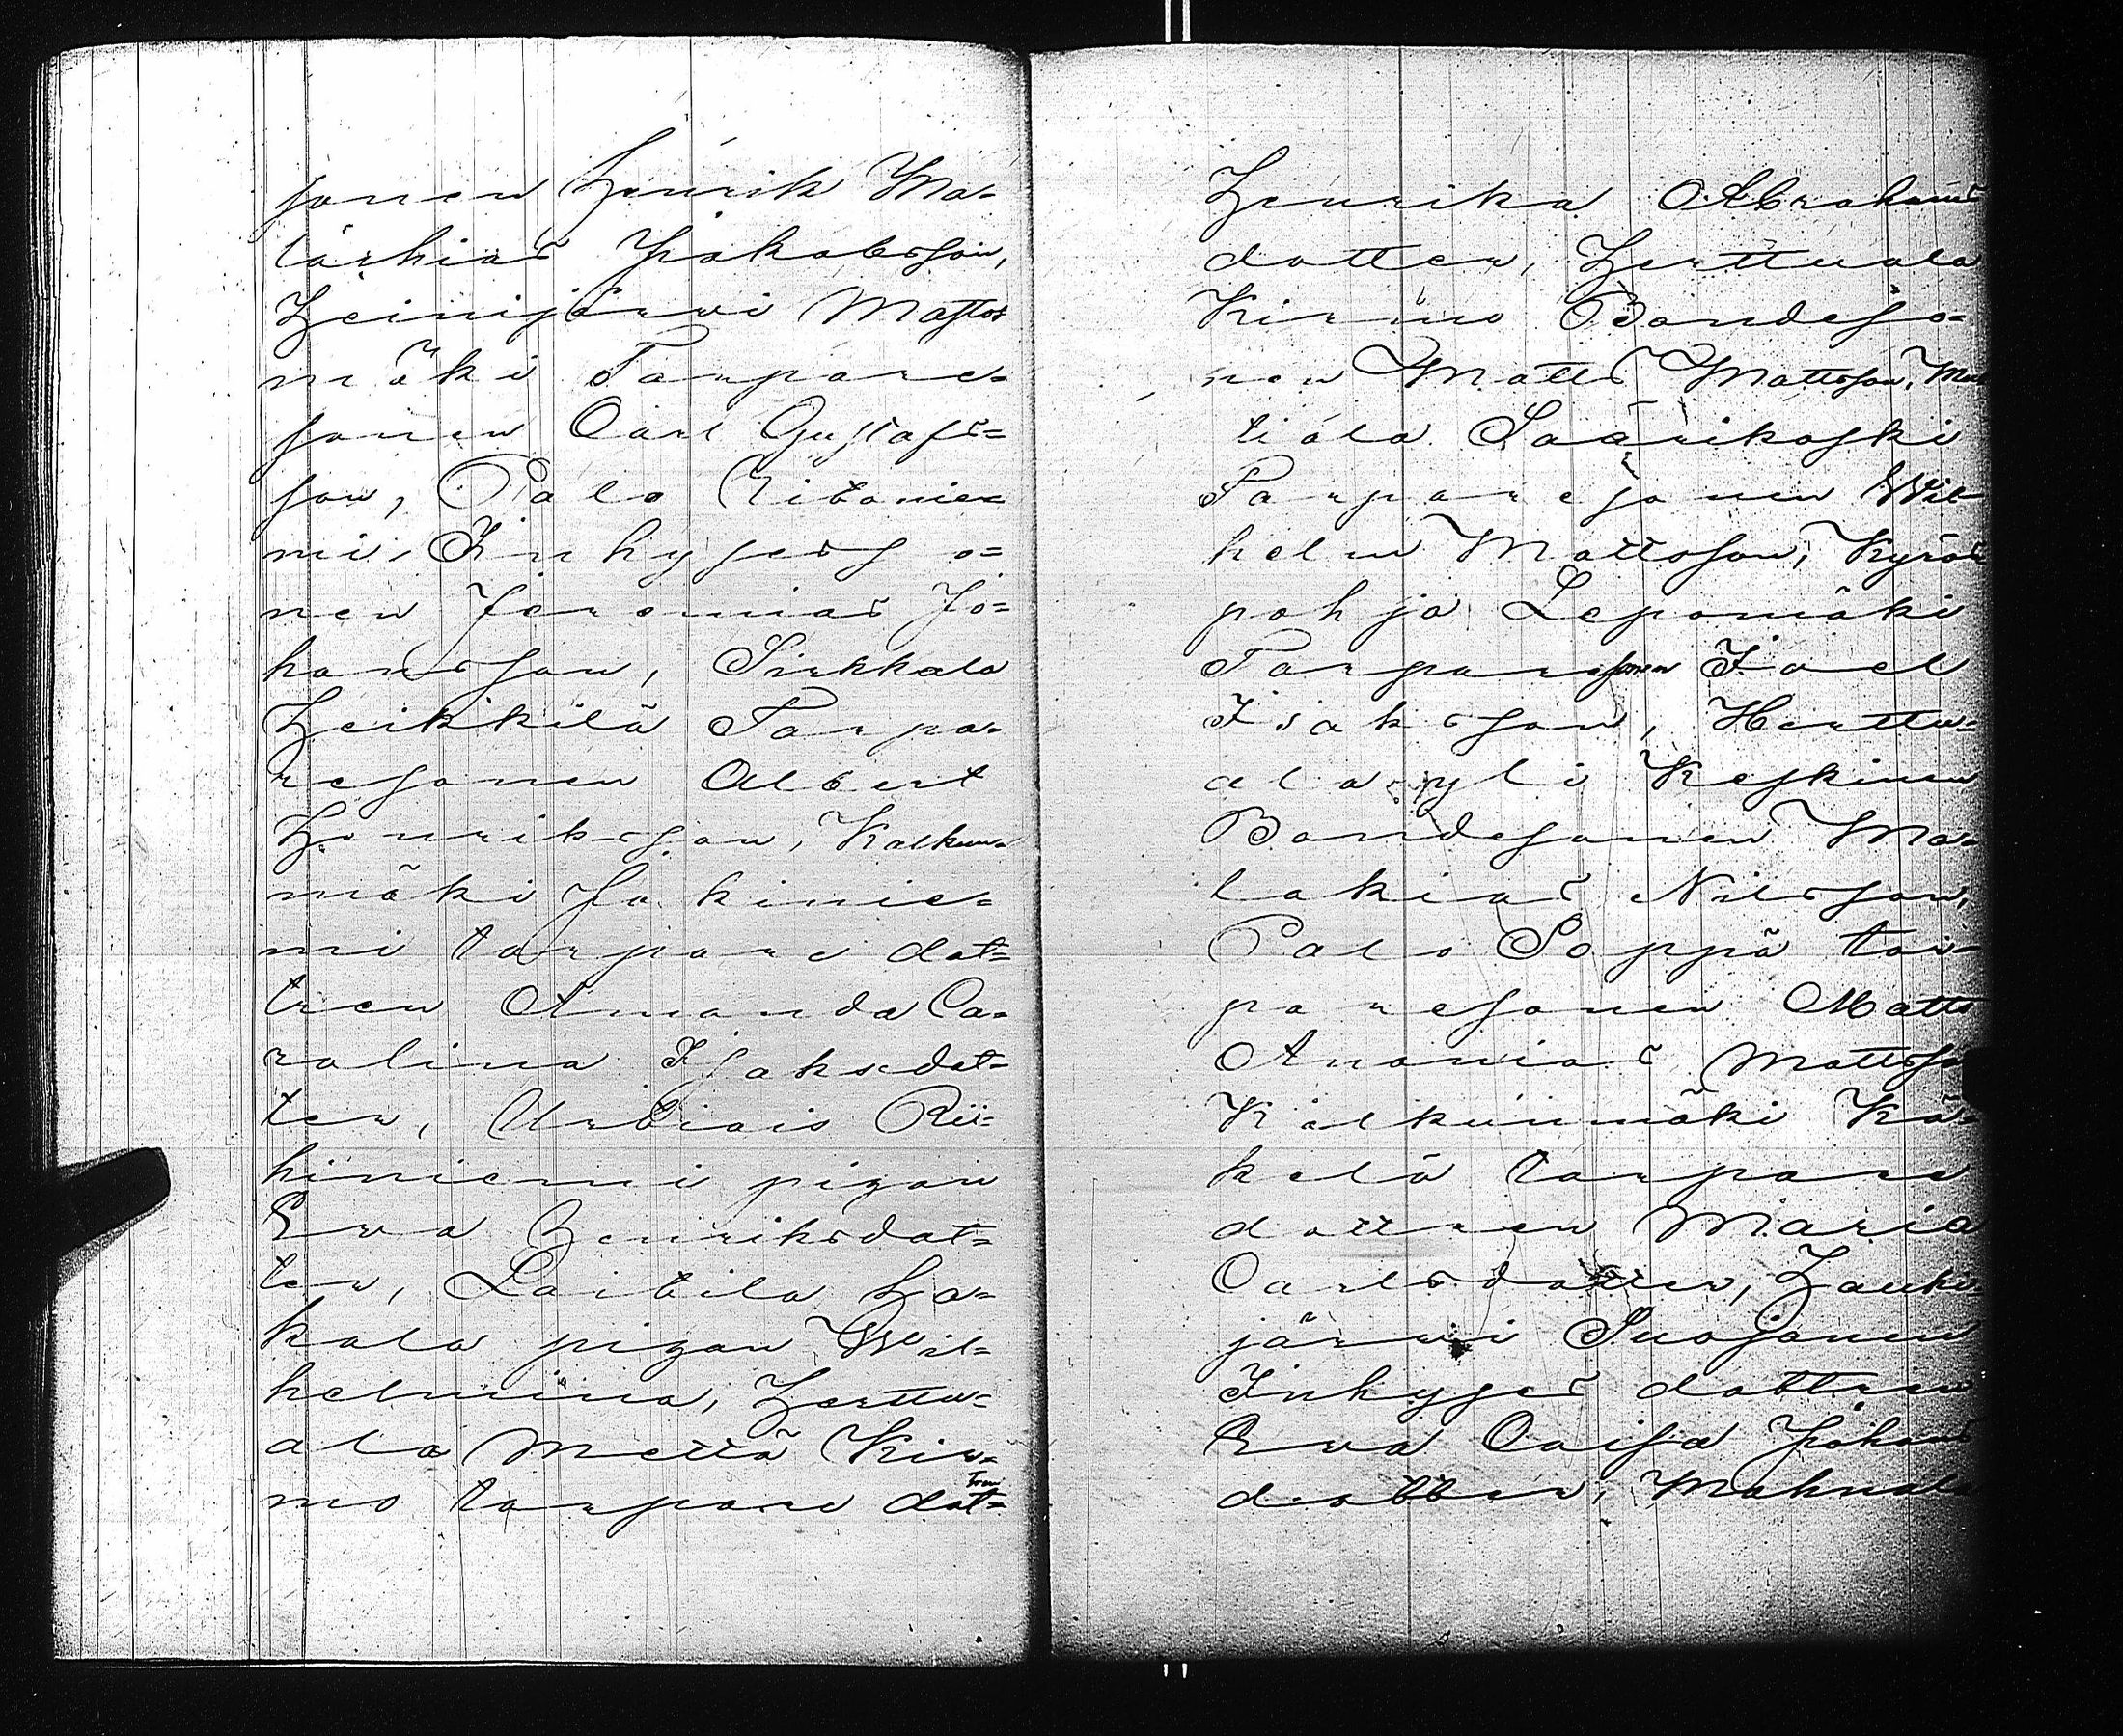 sonen Henrik Ma-
tärhias Jakobsson,
Heinijärvi Mattos
mäki Torpare-
sonen Carl Gustafs=
son, Palo Ritanie=
mi, Inhyses so=
nen Jeremias Jo=
hansson, Sirkkala
Heikkilä Torpa-
resonen Albert
Henriksson, Kalkun-
mäki Jokinie=
mi torpare dot=
tren Amanda Ca-
rolina Isaksdot=
ter, Urbiais Rii=
hiniemi pigan
Eva Henriksdot=
ter, Laitila Ha=
kala pigan Wil=
helmina, Herttu=
ala Mettä Kir=
mo torpare dot=
tren
Henrika Abrahams
dotter, Herttuala
Kirmo Bondeso=
nen Matts Mattsson, Mat
tiala Saarikoski
Torparesonen Wil-
helm Mattsson, Kyrös
pohja Lepomäki
Torparesonen Joel
Isaksson, Herttu=
ala yli Keskinen
Bondesonen Ma-
lakias Nilsson,
Palo Soppä tor-
paresonen Matts
Ananias Mattsso
Kalkunmäki Kä-
kelä torpare
dottren Maria
Carlsdotter, Hauki-
järvi Suojanen
Inhyses dottren
Eva Caisa Johans
dotter, Mahnala